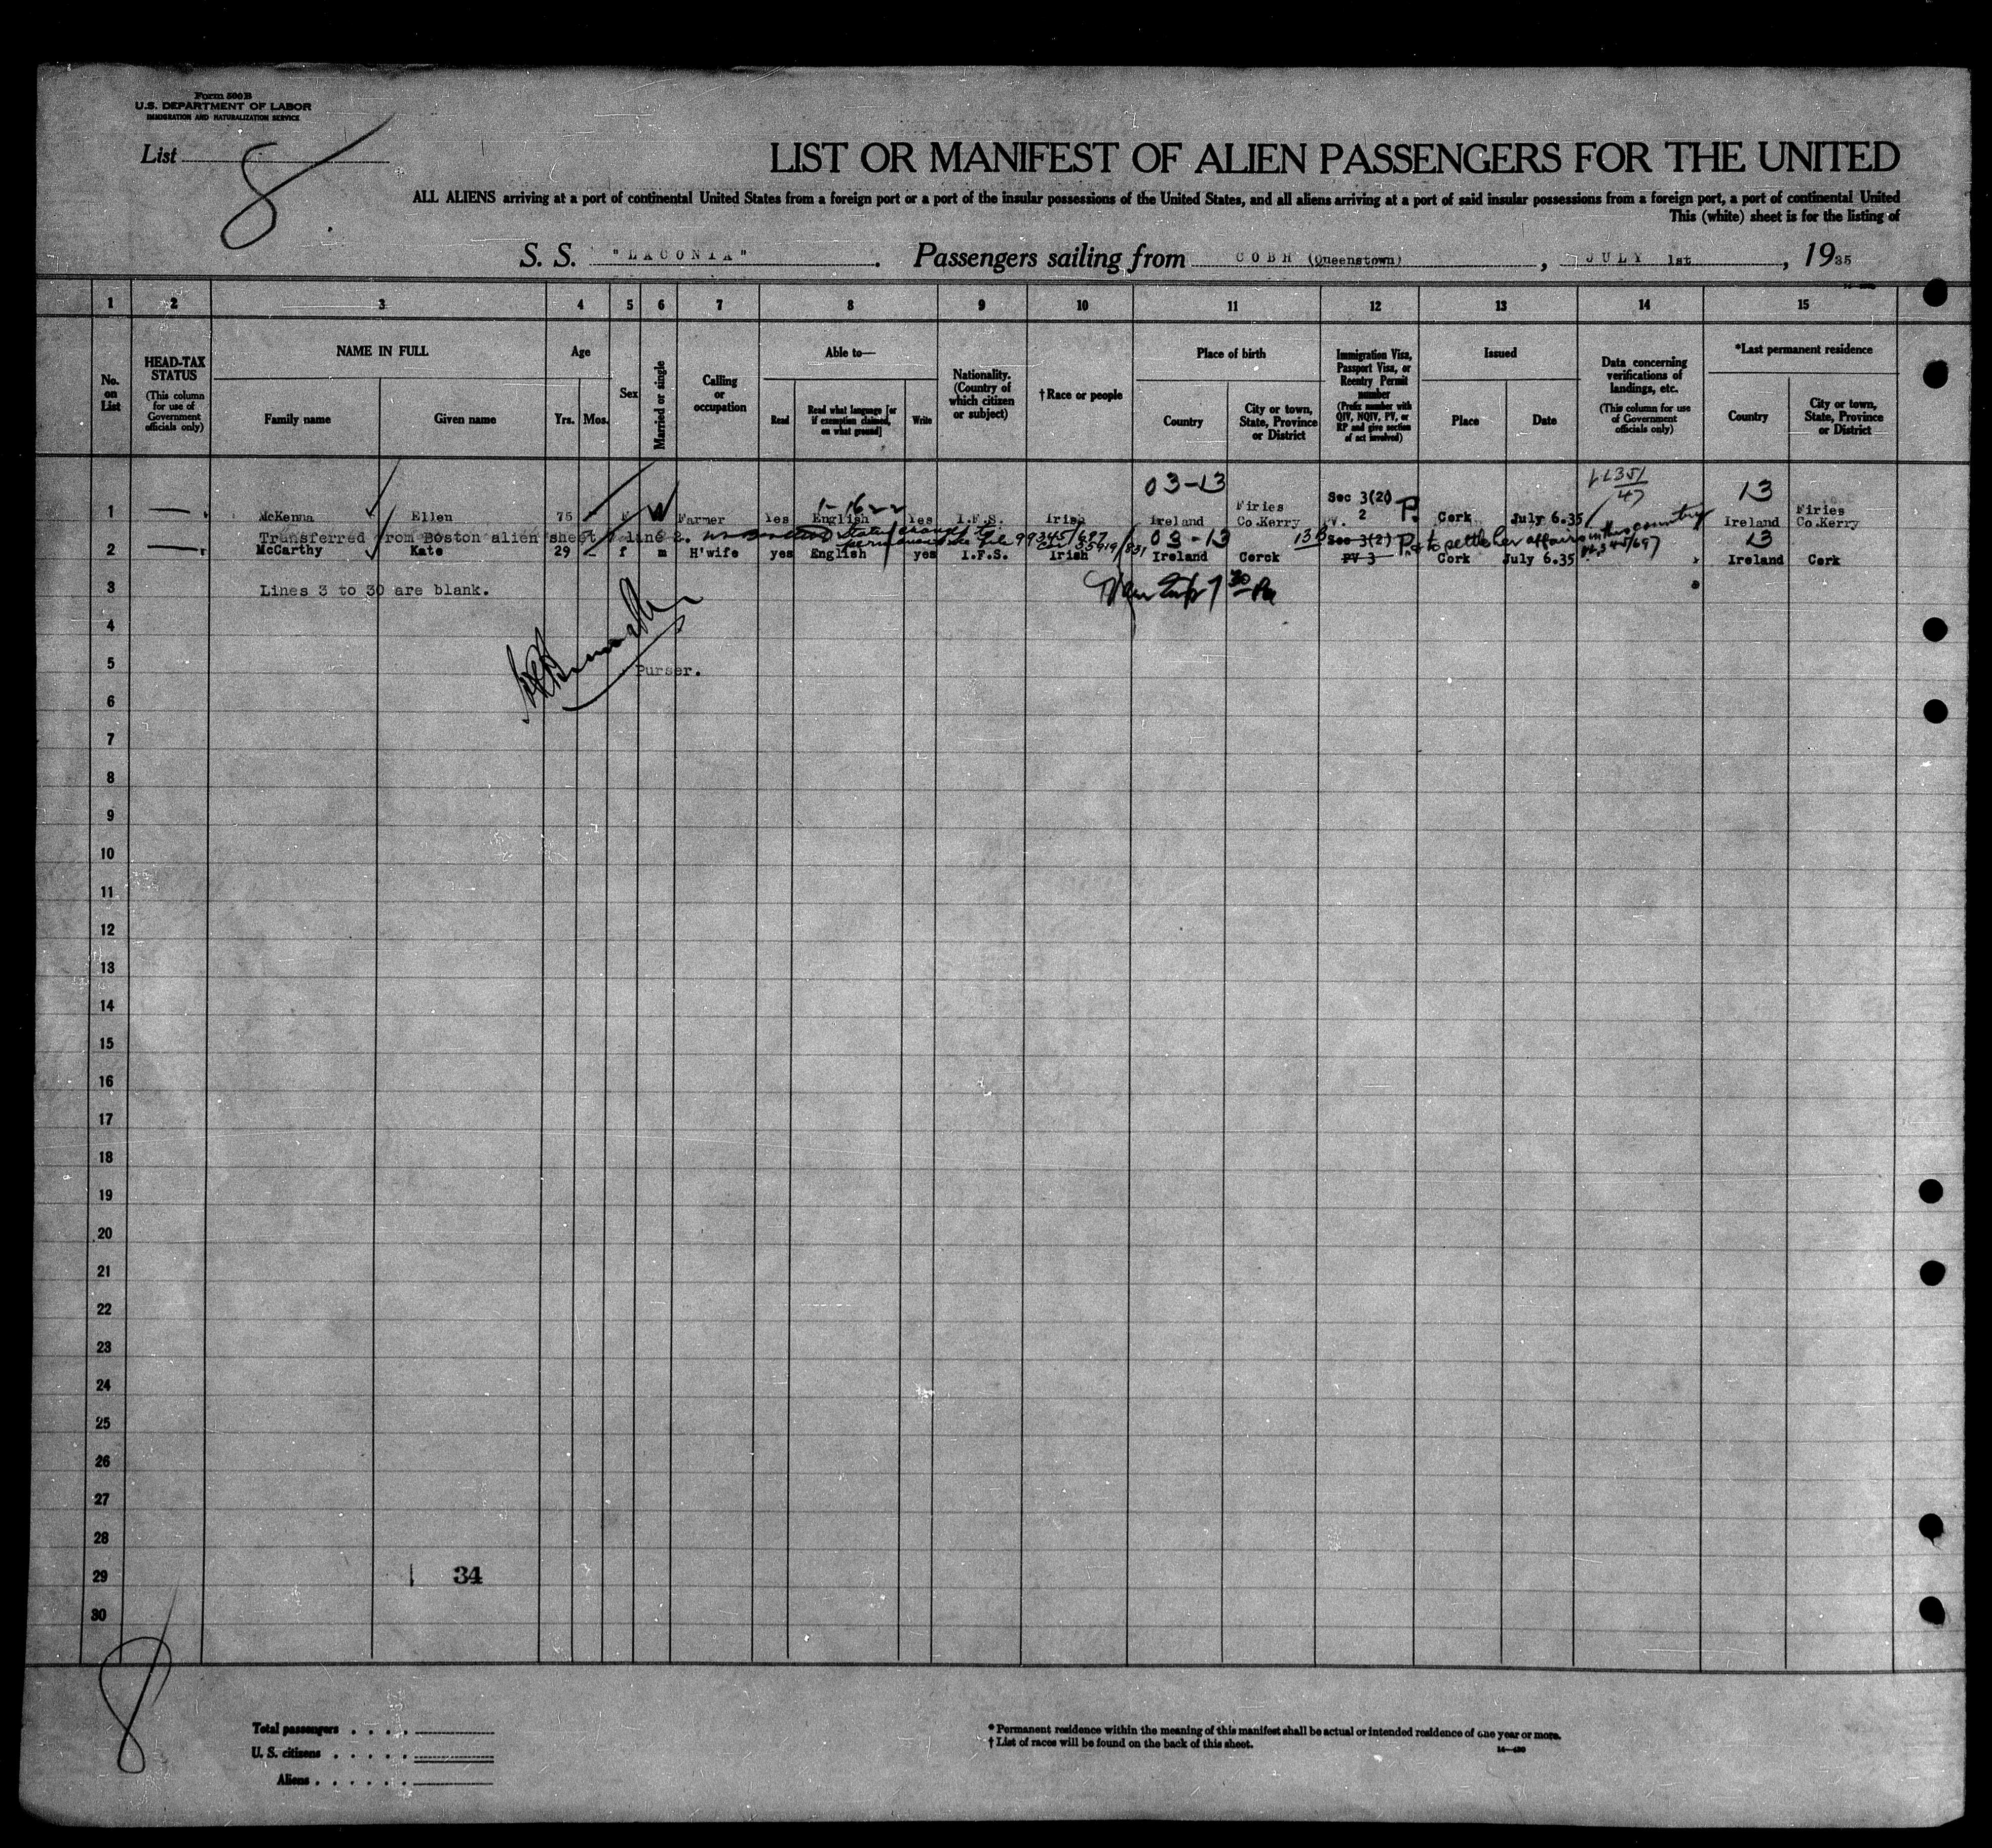 Form 500 B
U.S. DEPARTMENT OF LABOR
IMMIGRATION AND NATURALIZATION SERVICE
List 8
LIST OR MANIFEST OF ALIEN PASSENGERS FOR THE UNITED
ALL ALIENS arriving at a port of continental United States from a foreign port or a port of the insular possessions of the United States, and all aliens arriving at a port of said insular possessions from a foreign port, a port of continental United
This (white) sheet is for the listing of
S. S. "LACONIA". Passengers sailing from COBH (Queenstown), JULY 1st, 1935
1 2 3 4 5 6 7 8 9 10 11 12 13 14 15
No. on List
HEAD-TAX STATUS
(This column for use of Government officials only)
NAME IN FULL
Family name
Given name
Age
Yrs. Mos.
Sex
Married or single
Calling or occupation
Able to—
Read
Read what language [or if exemption claimed, on what ground]
Write
Nationality. (Country of which citizen or subject)
†Race or people
Place of birth
Country
City or town, State, Province or District
Immigration Visa, Passport Visa, or Reentry Permit number
(Prefix number with QIV, NQIV, PV, or RP and give section of act involved)
Issued
Place
Date
Data concerning verifications of landings, etc.
(This column for use of Government officials only)
*Last permanent residence
Country
City or town, State, Province or District
03-13
13
1-16-22
1 McKenna Ellen 75 F W Farmer Yes English Yes I.F.S. Irish Ireland Firies Co.Kerry Sec 3(2) V. 2 P. Cork July 6.35 Ireland Firies Co.Kerry
Transferred from Boston alien sheet line 2.
to settle her affairs in this country
03-13
13
2 McCarthy Kate 29 - f m H'wife yes English yes I.F.S. Irish Ireland Corck Sec 3(2) PV 3 Cork July 6.35 Ireland Cork
3 Lines 3 to 30 are blank.
4
5 Purser.
6
7
8
9
10
11
12
13
14
15
16
17
18
19
20
21
22
23
24
25
26
27
28
29 34
30
8
Total passengers . . . .
U. S. citizens . . . . .
Aliens . . . . . .
* Permanent residence within the meaning of this manifest shall be actual or intended residence of one year or more.
† List of races will be found on the back of this sheet.